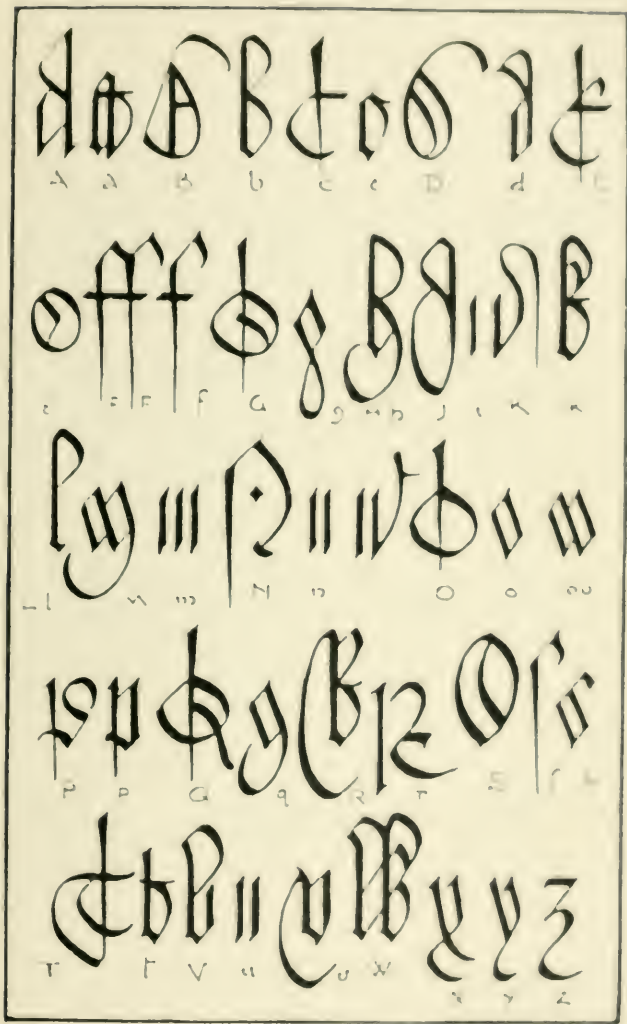 A a B b C c D d E
e F F f G g H h J i K k
L l M m N n O o
P p Q q R r S ſ s
T t V u v W
x y z